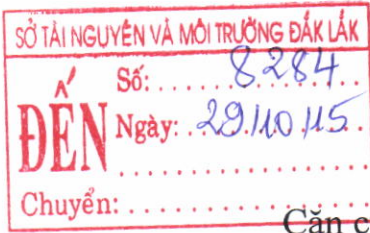 SỞ TÀI NGUYÊN VÀ MÔI TRƯỜNG ĐẮK LẮK
ĐẾN
Số: ........8284....
Ngày: ..29/10/15...
....................
Chuyển: ....................
Căn c